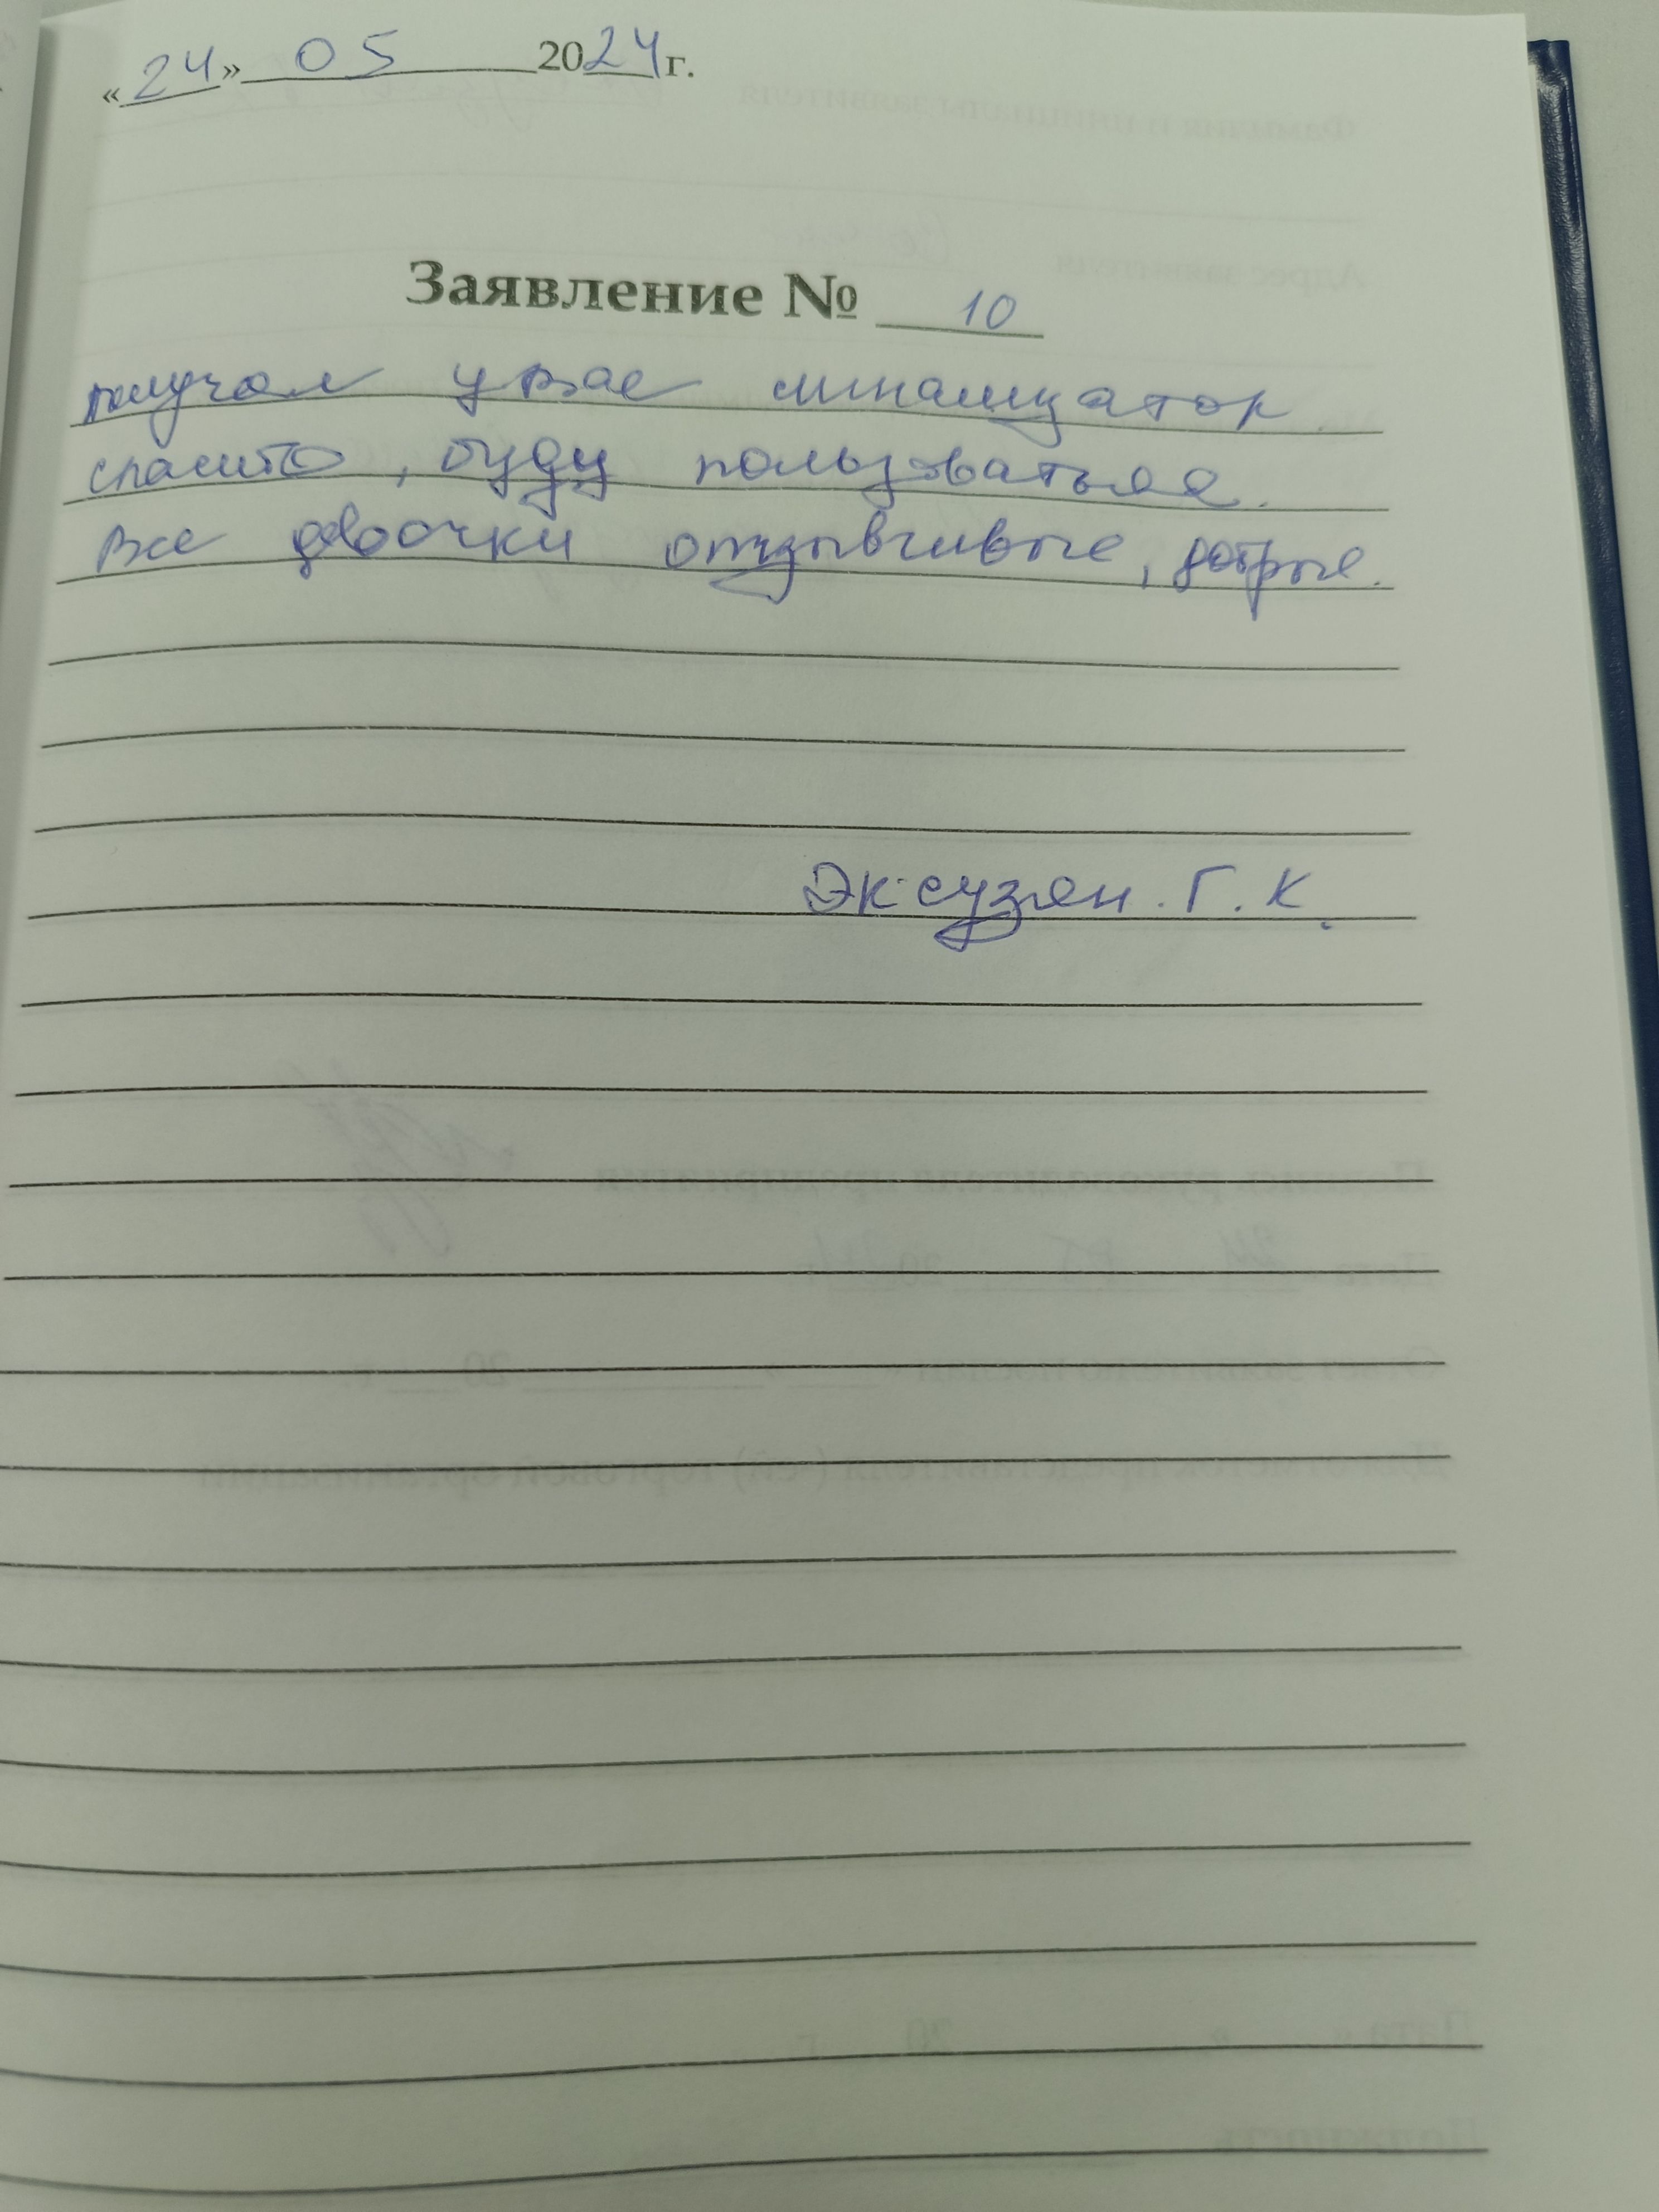 «24» 05 2024 г.
Заявление № 10
получал у вас
спасибо, буду пользоваться.
Все девочки отзывчивые, добрые.
Эксузян. Г. К.